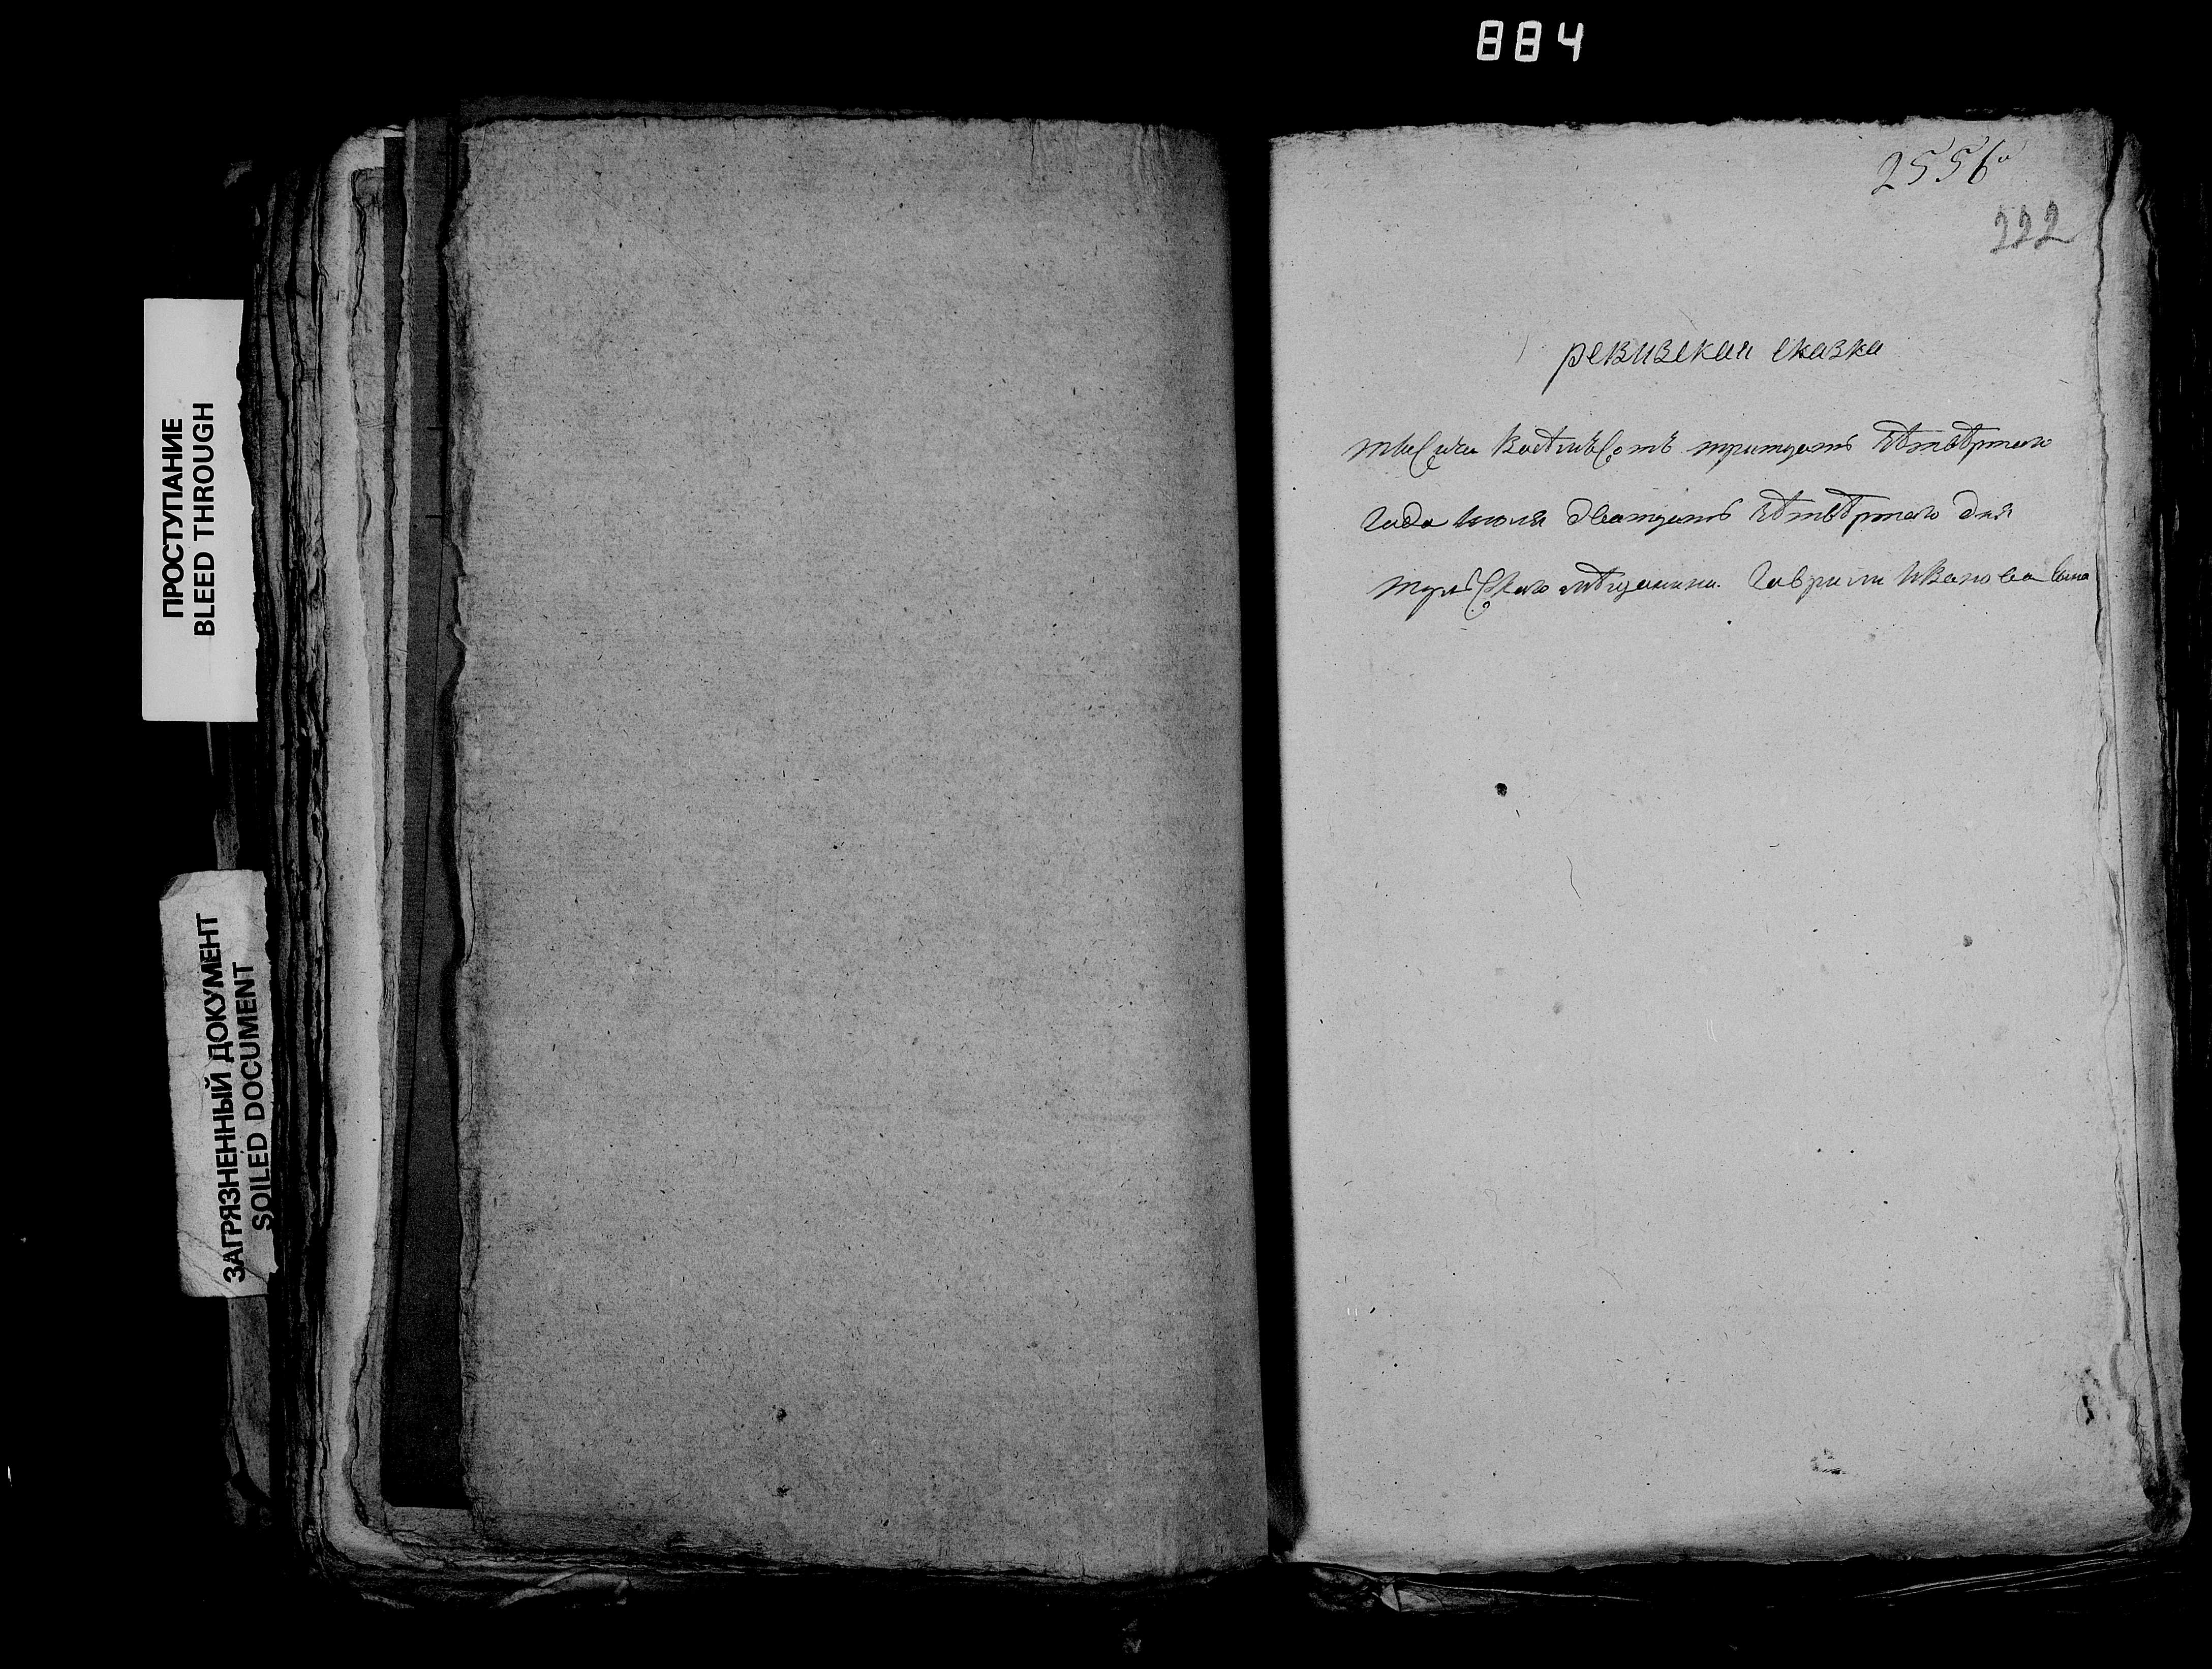 884
ПРОСТУПАНИЕ
BLEED THROUGH
ЗАГРЯЗНЕННЫЙ ДОКУМЕНТ
SOILED DOCUMENT
2556
222
ревизская сказка
тысеча восемьсотъ тритцать четвертаго
года июля дватцать четвертаго дня
тульского мещанина Гаврили Иванова сына